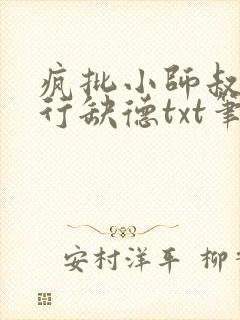 疯批小師叔
行缺德txt筆
安村洋平 柳